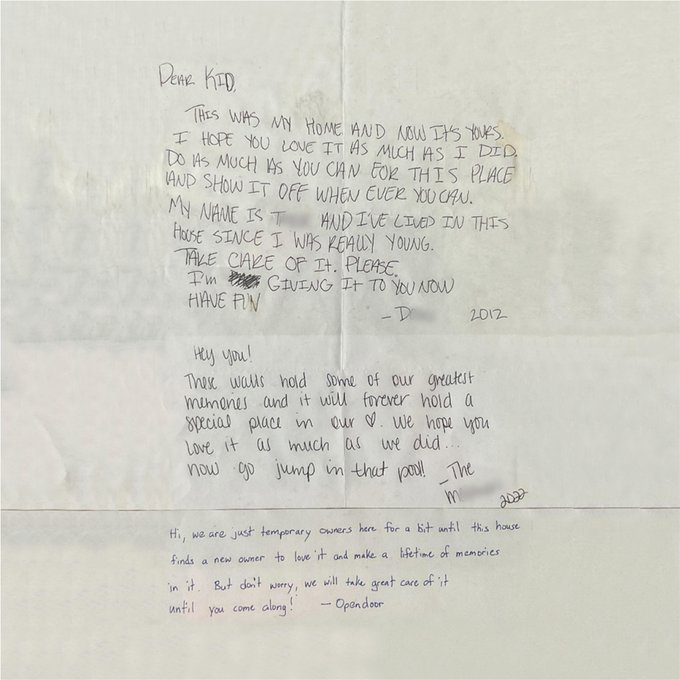 DEAR KID,
THIS WAS MY HOME AND NOW IT'S YOURS.
I HOPE YOU LOVE IT AS MUCH AS I DID.
DO AS MUCH AS YOU CAN FOR THIS PLACE
AND SHOW IT OFF WHEN EVER YOU CAN.
MY NAME IS T AND I'VE LIVED IN THIS
HOUSE SINCE I WAS REALLY YOUNG.
TAKE CARE OF IT. PLEASE.
I'm GIVING IT TO YOU NOW
HAVE FUN
- D 2012
Hey you!
These walls hold some of our greatest
memories and it will forever hold a
special place in our ♡. We hope you
love it as much as we did...
now go jump in that pool!
- The
M 2022
Hi, we are just temporary owners here for a bit until this house
finds a new owner to love it and make a lifetime of memories
in it. But don't worry, we will take great care of it
until you come along! - Opendoor